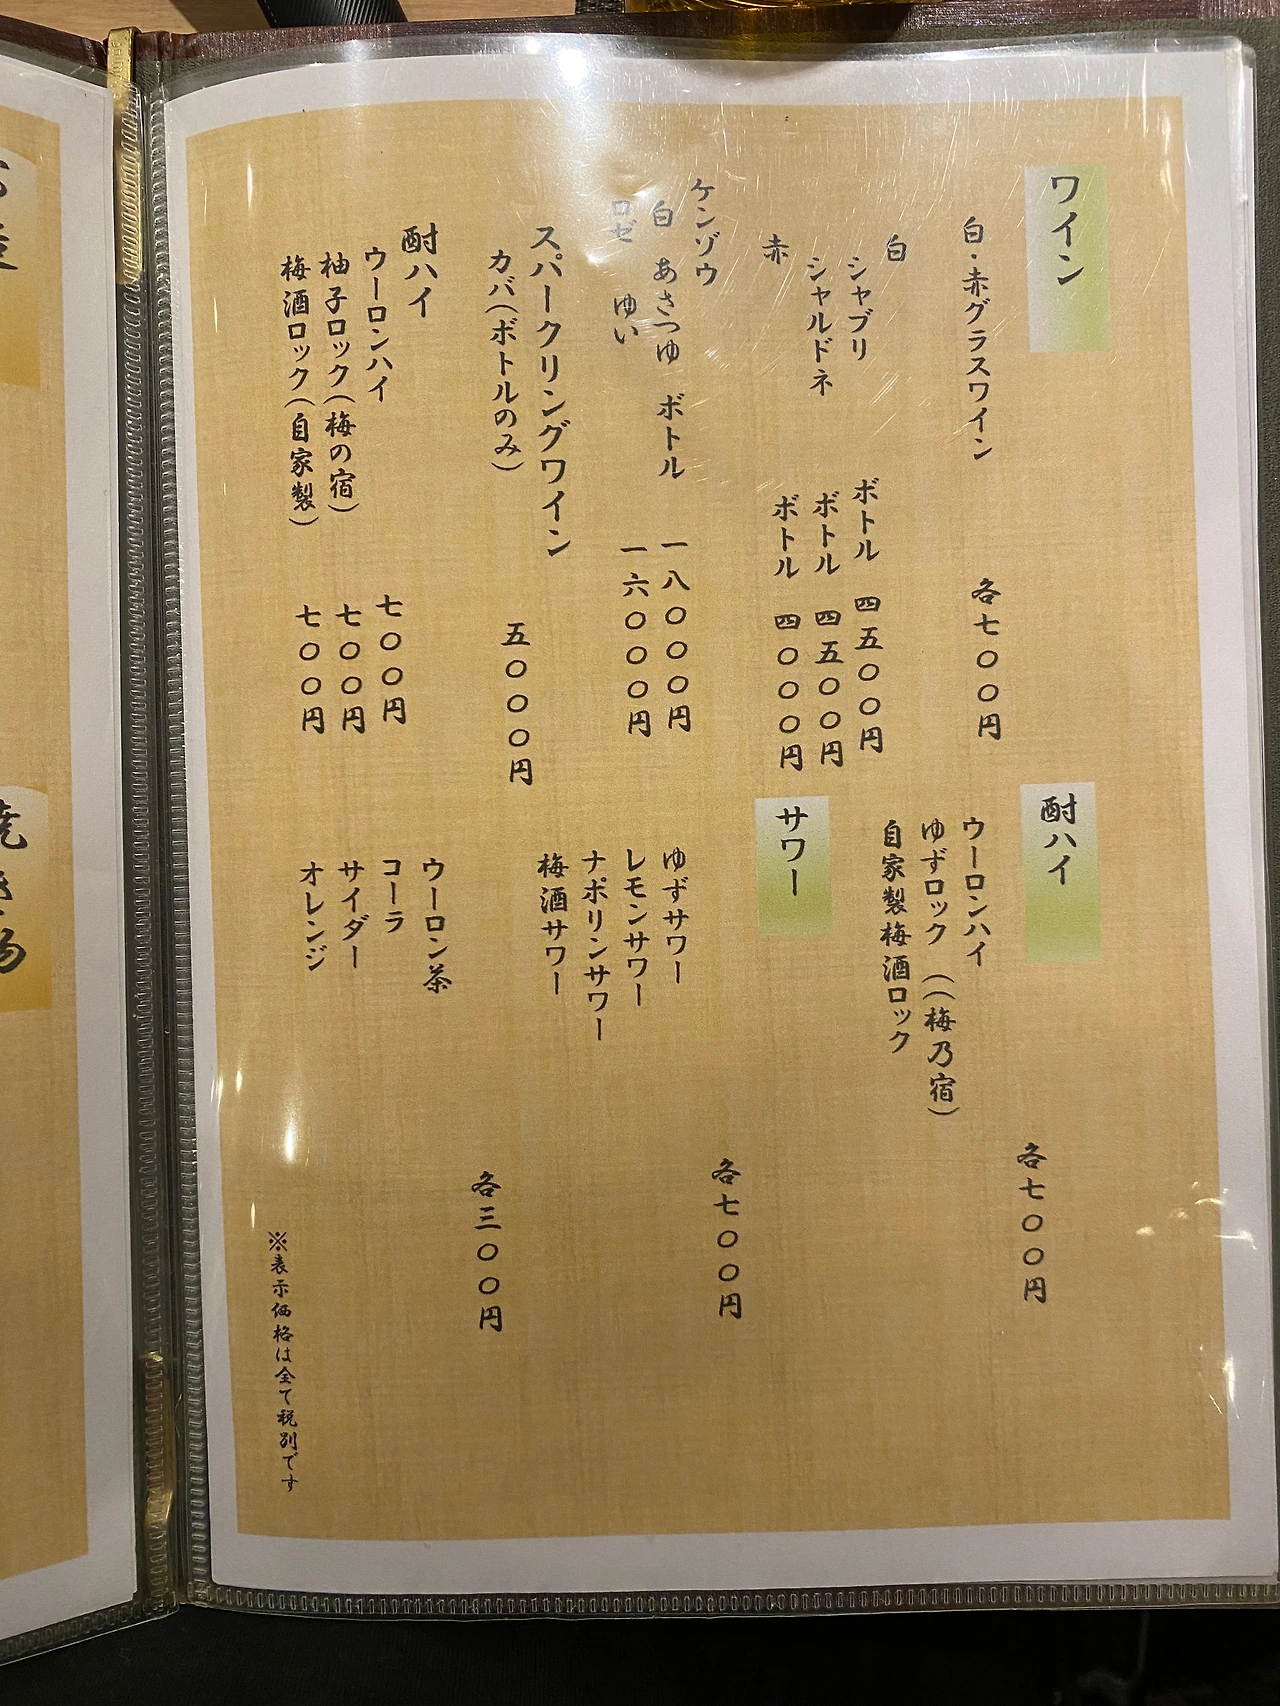 ワイン
白・赤グラスワイン 各七〇〇円
白
シャブリ ボトル 四五〇〇円
シャルドネ ボトル 四五〇〇円
赤 ボトル 四〇〇〇円
ケンゾウ
白 あさつゆ ボトル 一八〇〇〇円
ロゼ ゆい 一六〇〇〇円
スパークリングワイン
カバ(ボトルのみ) 五〇〇〇円
酎ハイ
ウーロンハイ 七〇〇円
柚子ロック(梅の宿) 七〇〇円
梅酒ロック(自家製) 七〇〇円
酎ハイ
各七〇〇円
ウーロンハイ
ゆずロック ((梅乃宿)
自家製梅酒ロック
サワー
各七〇〇円
ゆずサワー
レモンサワー
ナポリンサワー
梅酒サワー
各三〇〇円
ウーロン茶
コーラ
サイダー
オレンジ
※表示価格は全て税別です